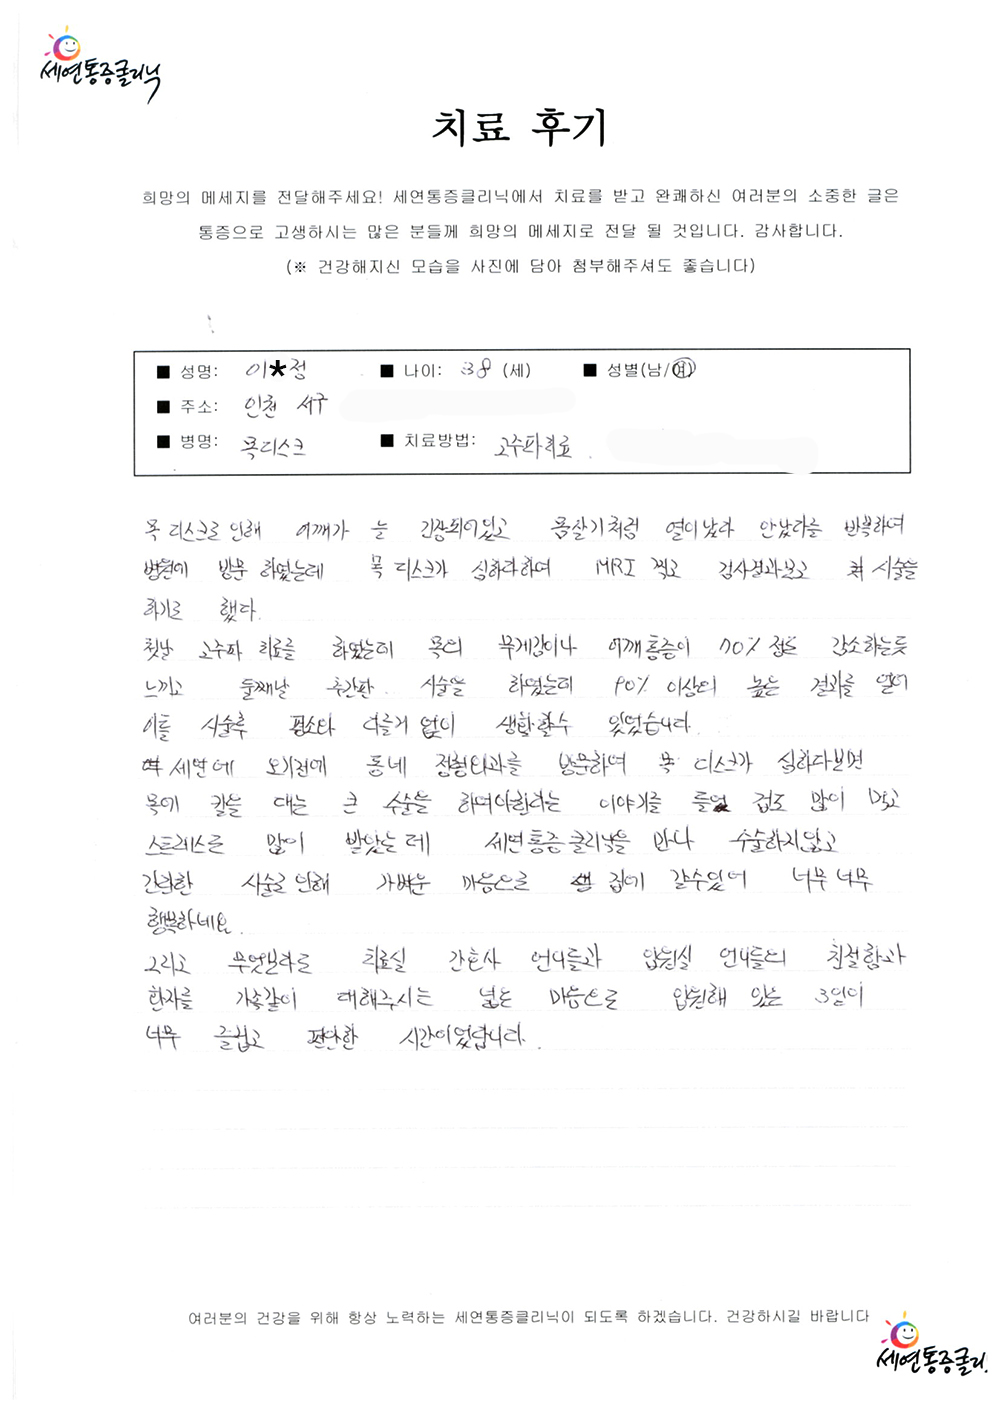 세연통증클리닉
치료 후기
희망의 메세지를 전달해주세요! 세연통증클리닉에서 치료를 받고 완쾌하신 여러분의 소중한 글은
통증으로 고생하시는 많은 분들께 희망의 메세지로 전달 될 것입니다. 감사합니다.
(※ 건강해지신 모습을 사진에 담아 첨부해주셔도 좋습니다)
■ 성명: 이*정 ■ 나이: 38 (세) ■ 성별(남/여)
■ 주소: 인천 서구
■ 병명: 목디스크 ■ 치료방법: 고주파치료.
목 디스크로 인해 어깨가 늘 긴장되어있고 몸살기처럼 열이났다 안났다를 반복하여
병원에 방문 하였는데 목 디스크가 심하다하여 MRI 찍고 검사결과보고 시술을
하기로 했다.
첫날 고주파 치료를 하였는데 목의 무게감이나 어깨통증이 70% 정도 감소하는듯
느끼고 둘째날 추간판 시술을 하였는데 90% 이상의 높은 결과를 얻어
이틀 시술후 평소와 다를거 없이 생활할수 있었습니다.
세연에 오기전에 동네 정형외과를 방문하여 목 디스크가 심하다보면
목에 칼을 대는 큰 수술을 하여야한다는 이야기를 듣고 겁도 많이 먹고
스트레스를 많이 받았는데 세연통증클리닉을 만나 수술하지않고
간단한 시술로 인해 가벼운 마음으로 집에 갈수있어 너무 너무
행복하네요.
그리고 무엇보다도 치료실 간호사 언니들과 입원실 언니들의 친절함과
환자를 가족같이 대해주시는 넓은 마음으로 입원해 있는 3일이
너무 즐겁고 편안한 시간이었답니다.
여러분의 건강을 위해 항상 노력하는 세연통증클리닉이 되도록 하겠습니다. 건강하시길 바랍니다
세연통증클리